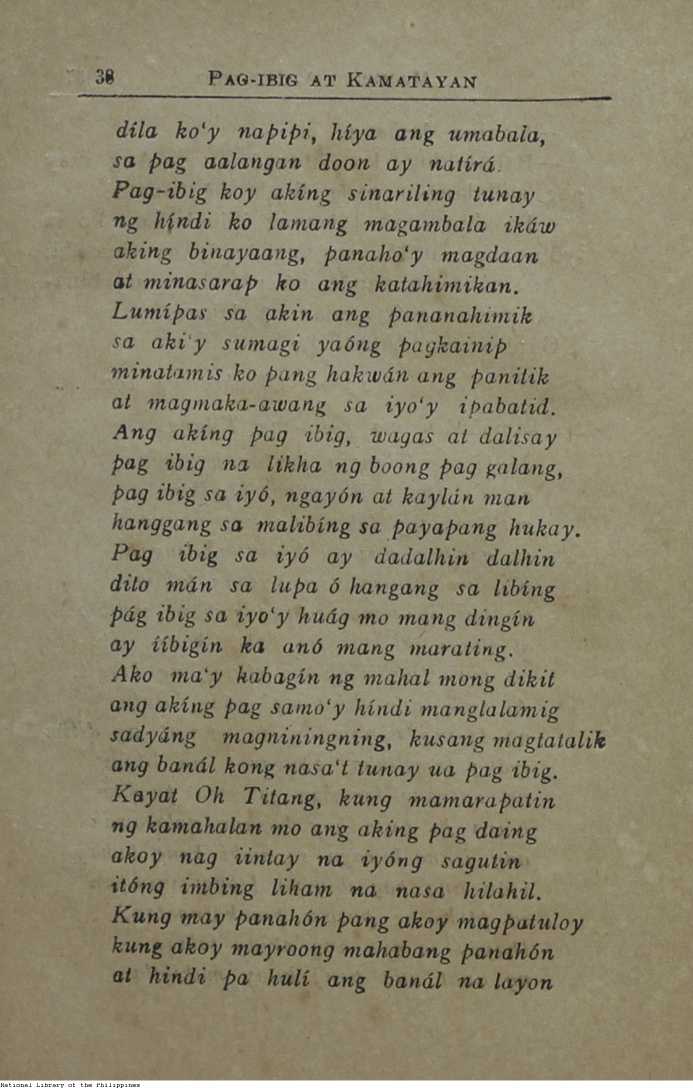 38 PAG-IBIG AT KAMATAYAN
díla ko'y napipi, híya ang umabala,
sa pag aalangan doon ay natírá.
Pag-ibig koy akíng sinariling tunay
ng híndi ko lamang magambala ikáw
aking binayaang, panaho'y magdaan
at minasarap ko ang katahimikan.
Lumípas sa akin ang pananahimik
sa aki'y sumagi yaóng pagkainip
minatamis ko pang hakwán ang panitik
at magmaka-awang sa iyo'y ipabatid.
Ang akíng pag ibig, wagas at dalisay
pag ibig na likha ng boong pag galang,
pag ibig sa iyó, ngayón at kaylán man
hanggang sa malibíng sa payapang hukay.
Pag ibig sa iyó ay dadalhin dalhin
dito mán sa lupa ó hangang sa libíng
pág ibig sa iyo'y huág mo mang dingín
ay iíbigín ka anó mang marating.
Ako ma'y kabagín ng mahal mong dikit
ang akíng pag samo'y híndi manglalamig
sadyáng magniningning, kusang magtatalik
ang banál kong nasa't tunay ua pag ibig.
Kayat Oh Titang, kung mamarapatin
ng kamahalan mo ang aking pag daing
akoy nag iintay na iyóng sagutin
itóng imbing liham na nasa hilahil.
Kung may panahón pang akoy magpatuloy
kung akoy mayroong mahabang panahón
at hindi pa hulí ang banál na layon
National Library of the Philippines